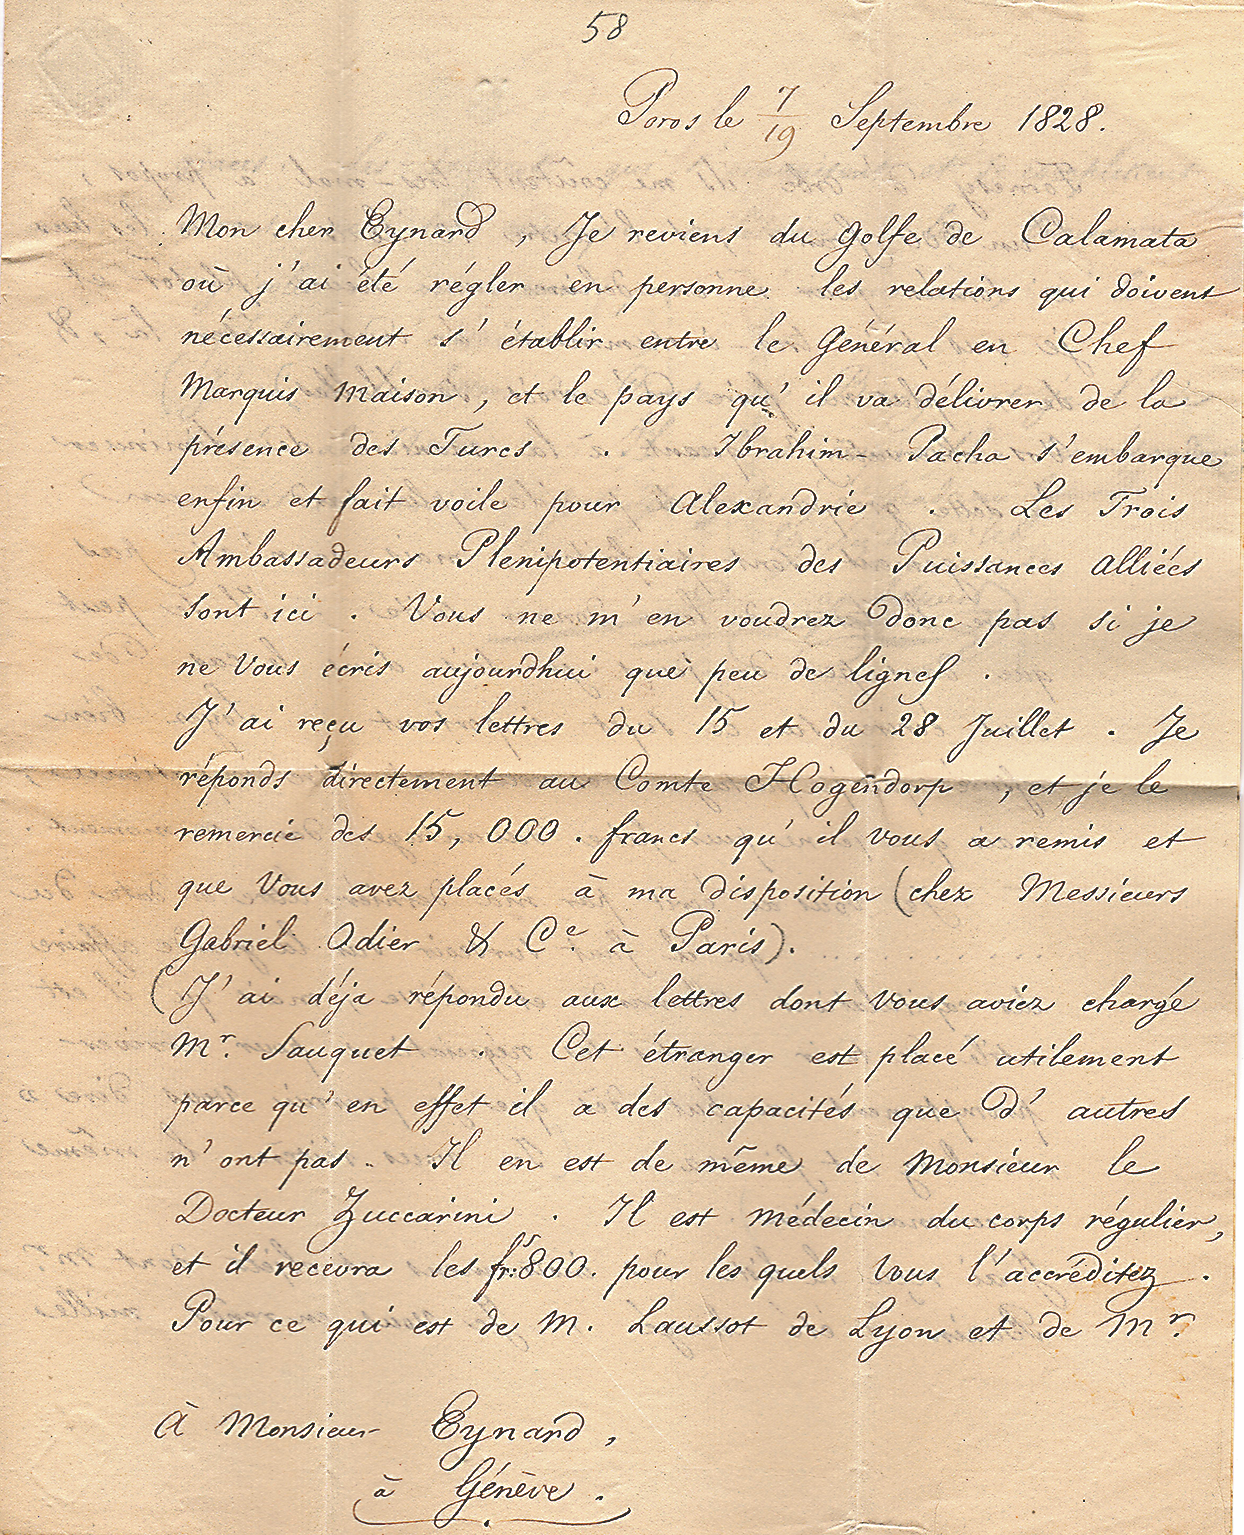 58
Poros le 7/19 Septembre 1828.
Mon cher Eynard, Je reviens du Golfe de Calamata
où j'ai été régler en personne les relations qui doivent
nécessairement s'établir entre le Général en Chef
Marquis Maison, et le pays qu'il va délivrer de la
présence des Turcs. Ibrahim-Pacha s'embarque
enfin et fait voile pour Alexandrie. Les Trois
Ambassadeurs Plenipotentiaires des Puissances Alliées
sont ici. Vous ne m'en voudrez donc pas si je
ne Vous écris aujourdhui que peu de lignes.
J'ai reçu vos lettres du 15 et du 28 Juillet. Je
réponds directement au Comte Hogendorp, et je le
remercie des 15,000. francs qu'il vous a remis et
que Vous avez placés à ma disposition (chez Messieurs
Gabriel Odier & Ce. à Paris).
(J'ai déja répondu aux lettres dont Vous aviez chargé
Mr. Sauquet. Cet étranger est placé utilement
parce qu'en effet il a des capacités que d'autres
n'ont pas. Il en est de même de Monsieur le
Docteur Zuccarini. Il est Médecin du corps régulier,
et il recevra les frs: 800. pour les quels Vous l'accréditez.
Pour ce qui est de M. Laussot de Lyon et de Mr.
À Monsieur Eynard,
à Génève.